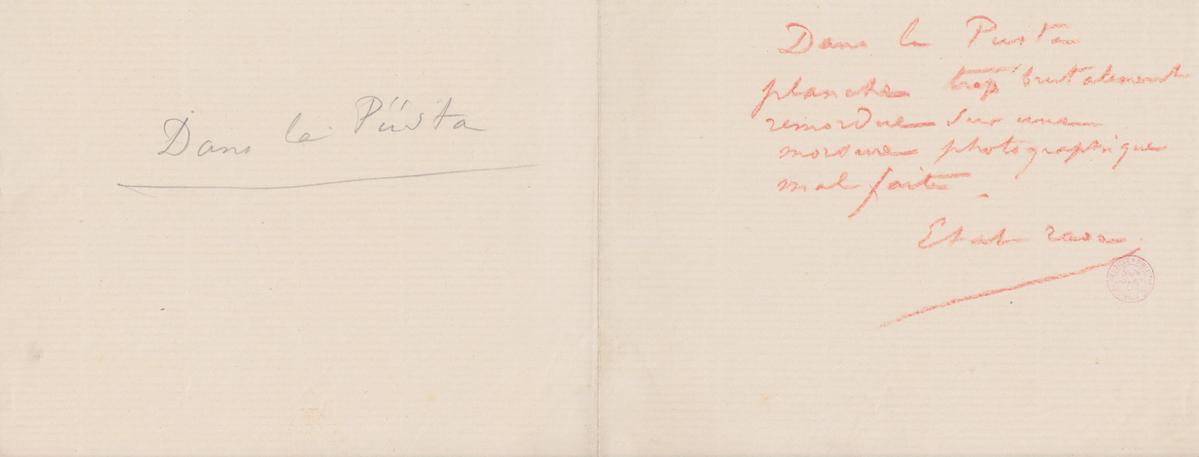 Dans la Püsta
Dans la Pusta
planche trop brutalement
remordue sur une
morsure photographique
mal faite.
Etat rare.